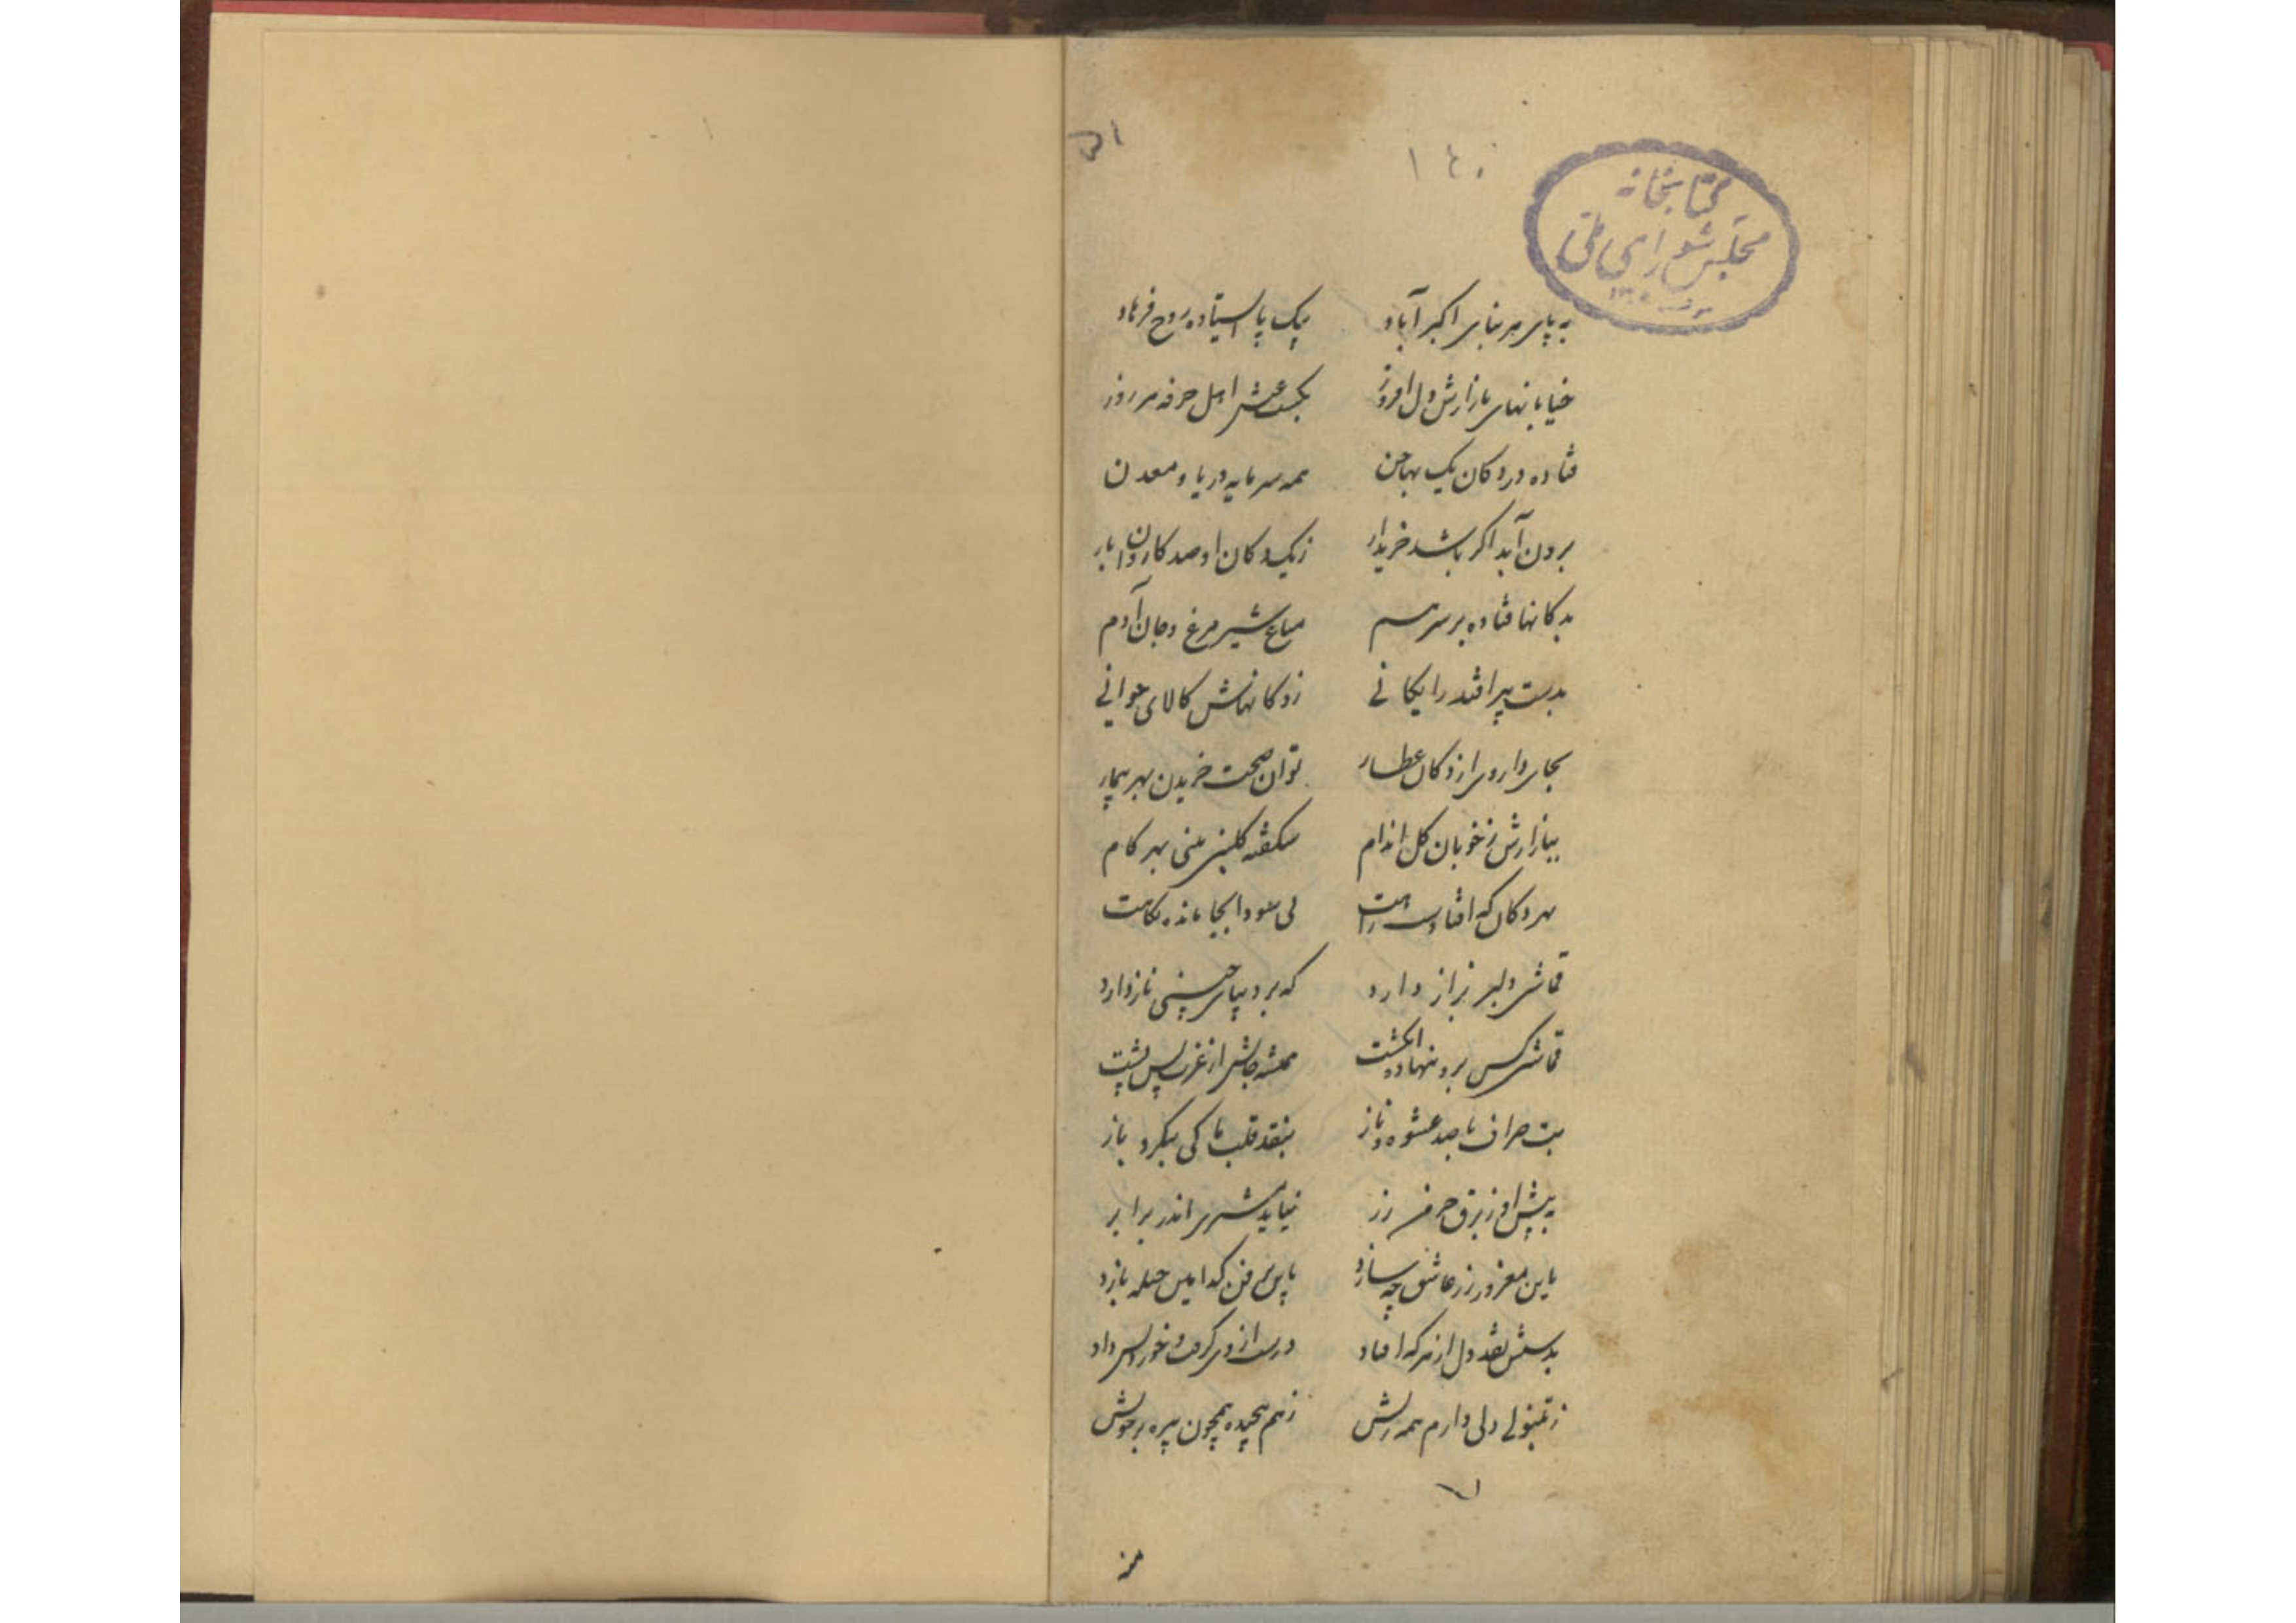 ۱۴۰
کتابخانه
مجلس شورای ملی
به پای هر بنای اکبرآباد بیک پا ایستاده روح فرهاد
خیابانهای بازارش دل افروز بکسب عیش اهل حرفه هر روز
فتاده در دکان یک مهاجن همه سرمایه دریا و معدن
برون آید اگر باشد خریدار ز یک دکان او صد کاروان بار
بدکانها فتاده بر سر هم متاع شیر مرغ و جان آدم
بدست پیر افتد رایکانی ز دکانهاش کالای جوانی
بجای داروی از دکان عطار توان صحت خریدن بهر بیمار
ببازارش ز خوبان کل اندام شکفته کلبنی بینی بهر کام
بهر دکان که افتادست راهت پی سودا بجا ماند نکاهت
قماش دلبر بزاز دارد که بر دیبای چینی ناز دارد
قماش کس برو ننهاده انکشت همیشه جانش از غرت پس پشت
بت صراف با صد عشوه و ناز بنقد قلب ما کی بنکرد باز
به پیش او ز برق خرمن زر نیاید مشتری اندر برابر
باین مغرور زر عاشق چه سازد باین پر فن کدامین حیله بازد
بدستش نقد دل از هر که افتاد درست از وی کرفت و خورد پس داد
ز تنبولی دلی دارم همه ریش ز هم پیچیده همچون بیره بر خویش